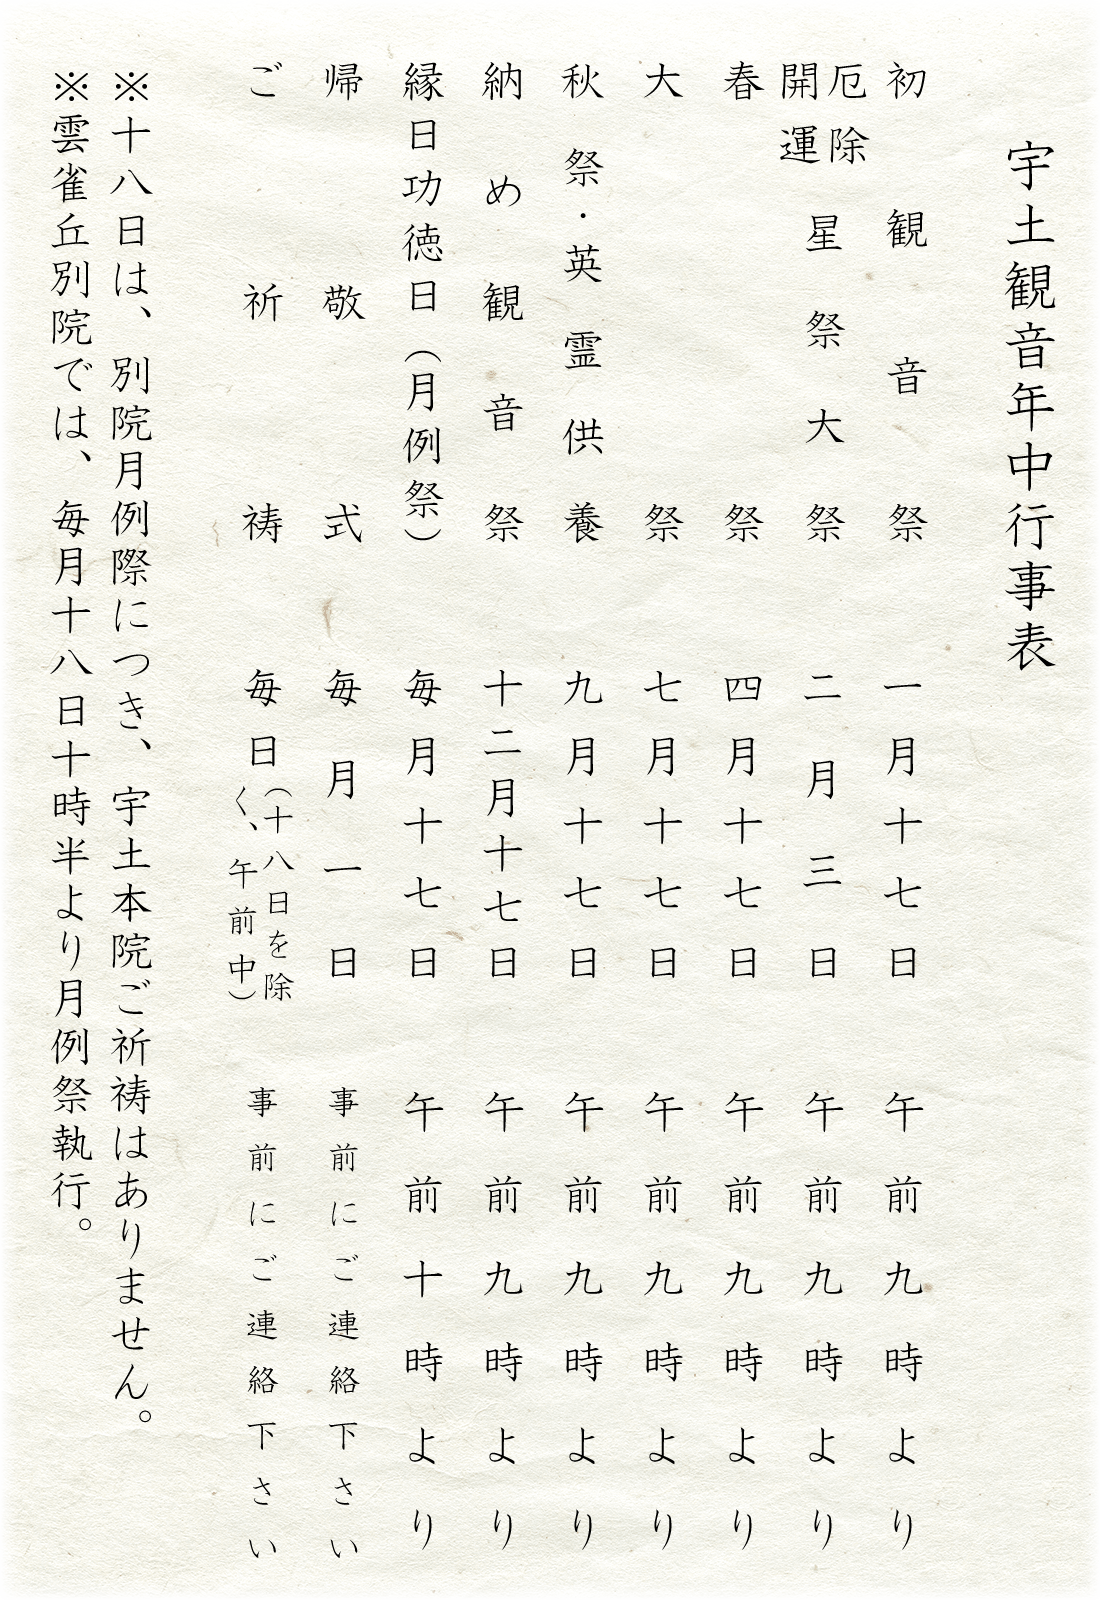 宇土観音年中行事表
初観音祭 一月十七日 午前九時より
厄除開運星祭大祭 二月三日 午前九時より
春祭 四月十七日 午前九時より
大祭 七月十七日 午前九時より
秋祭・英霊供養 九月十七日 午前九時より
納め観音祭 十二月十七日 午前九時より
縁日功徳日（月例祭） 毎月十七日 午前十時より
帰敬式 毎月一日 事前にご連絡下さい
ご祈祷 毎日（十八日を除く、午前中） 事前にご連絡下さい
※十八日は、別院月例際につき、宇土本院ご祈祷はありません。
※雲雀丘別院では、毎月十八日十時半より月例祭執行。